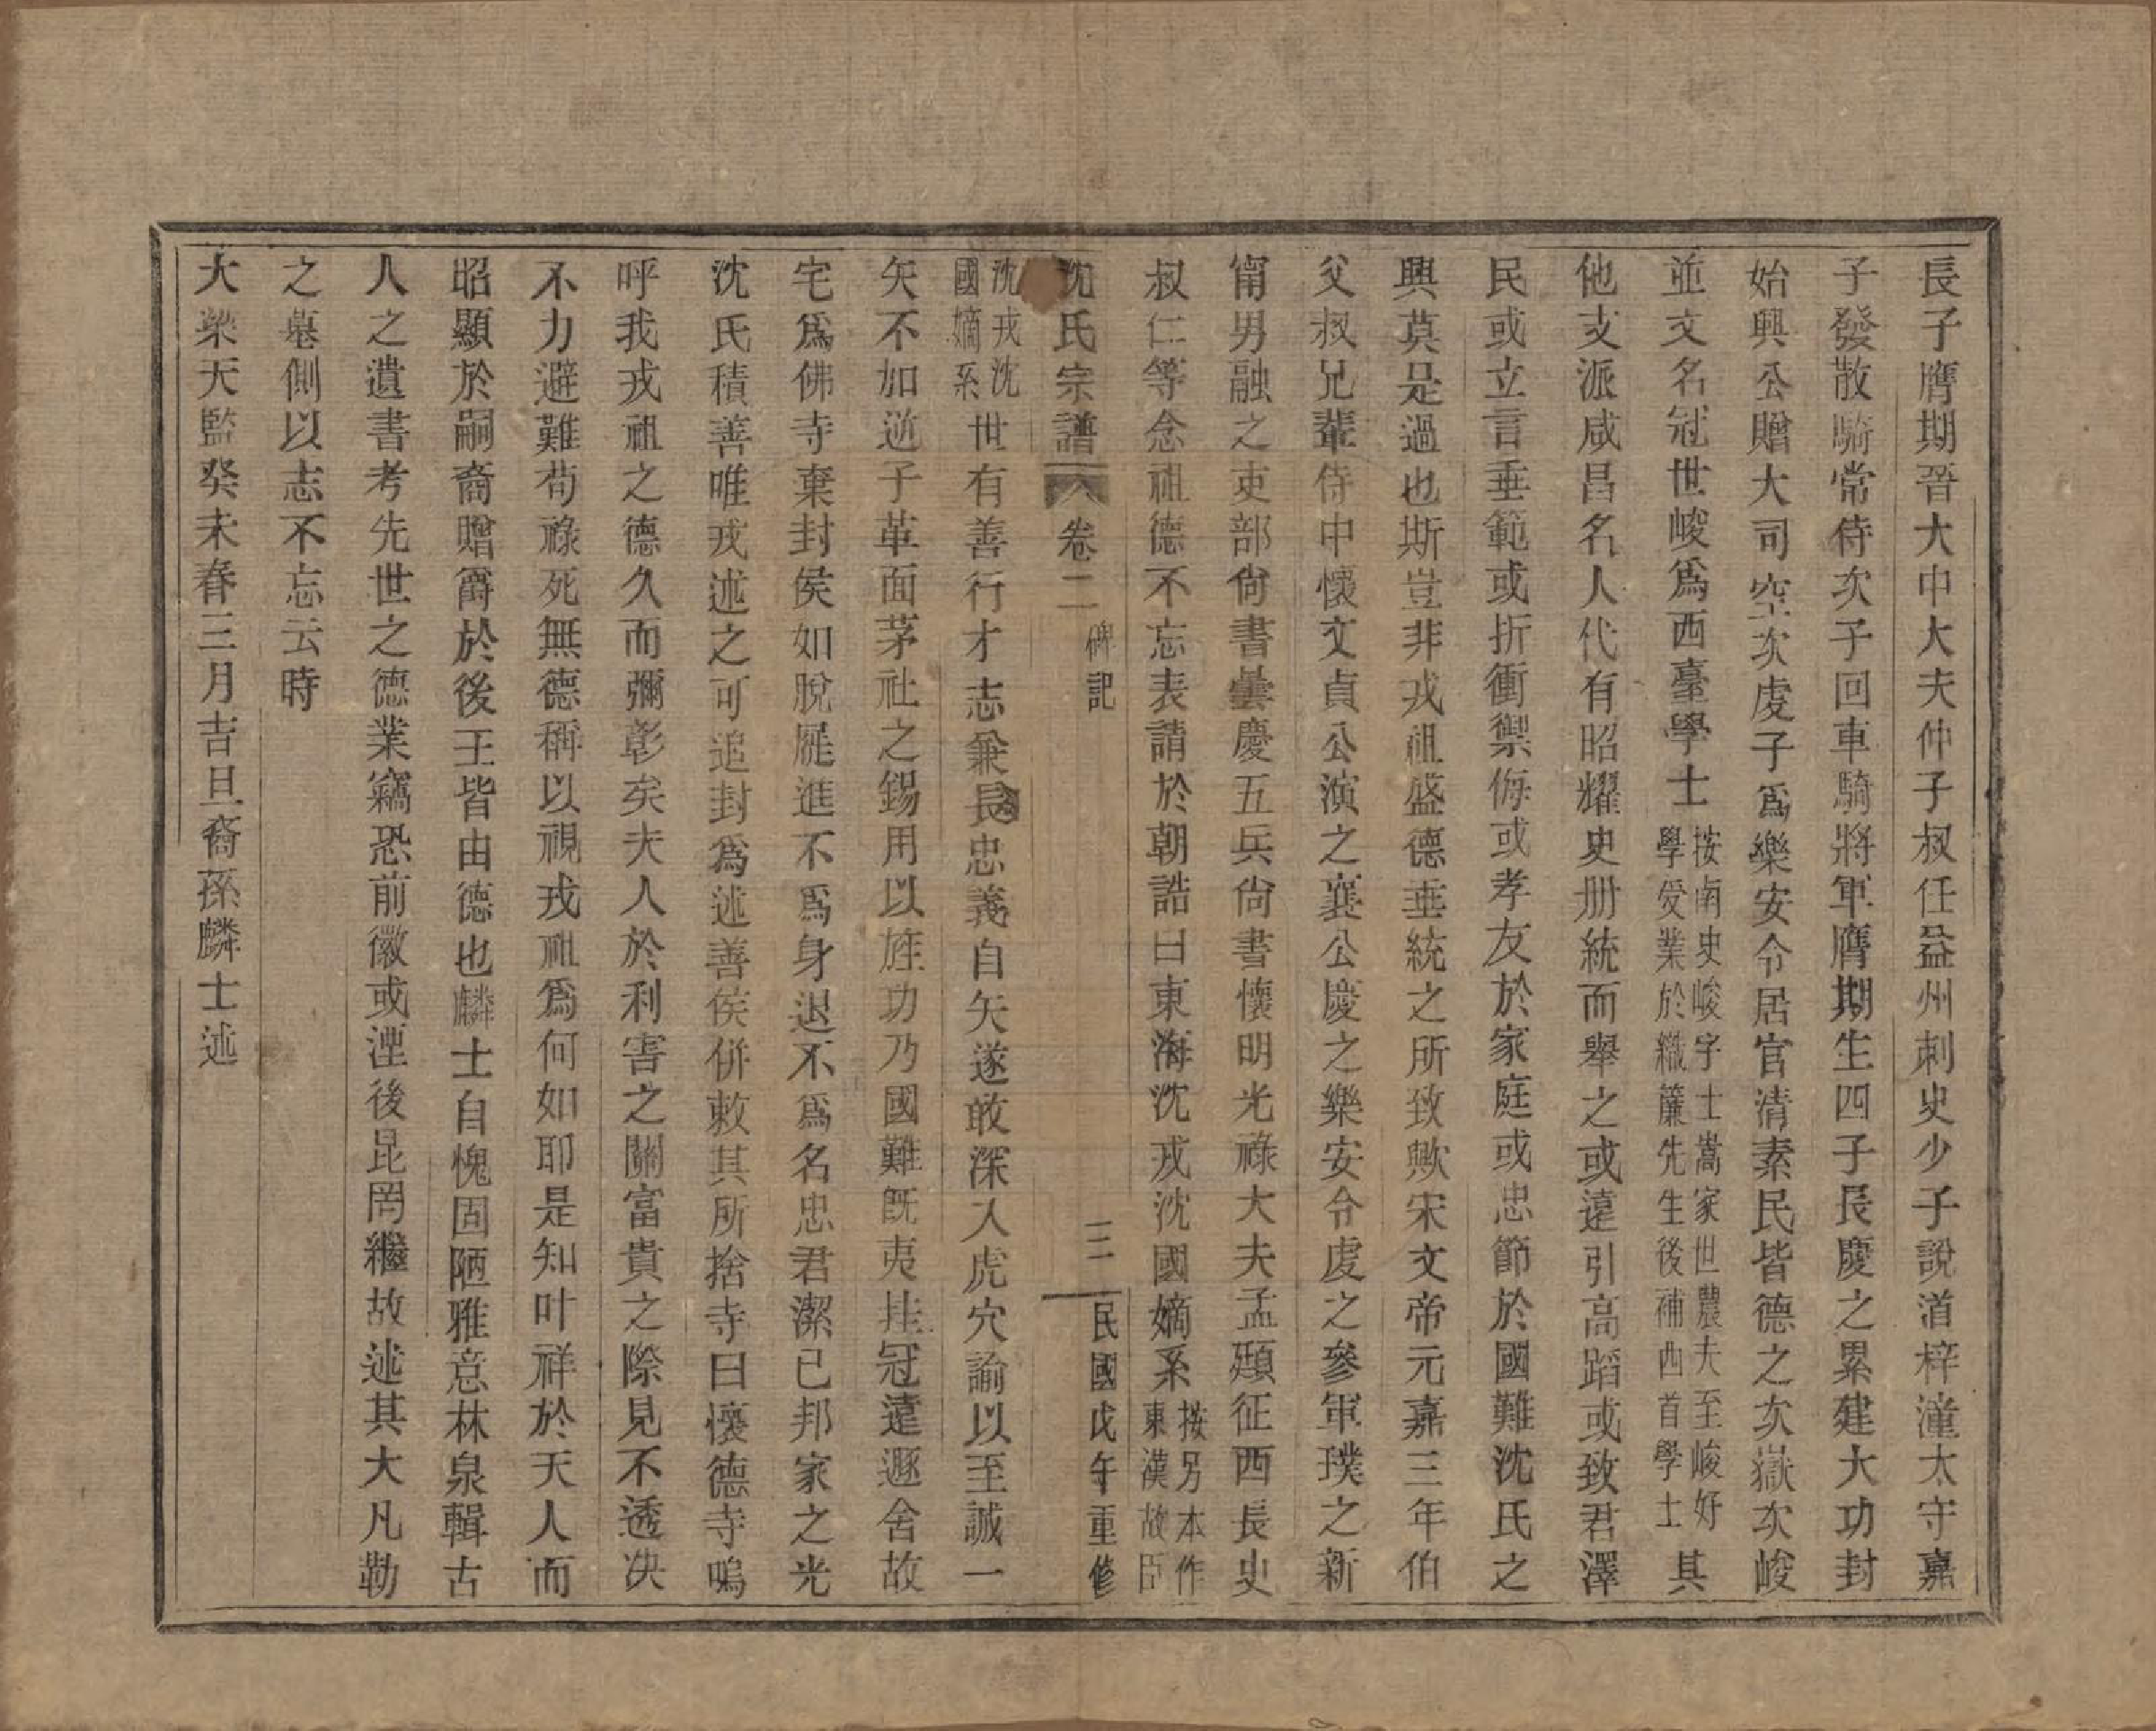 長子膺期晉大中大夫仲子叔任益州刺史少子說道梓潼太守嘉
子發散騎常侍次子回車騎將軍膺期生四子長慶之累建大功封
始興公贈大司空次虔子爲樂安令居官清素民皆德之次嶽次峻
並文名冠世峻爲西臺學士按南史峻字士嵩家世農夫至峻好學受業於織簾先生後補西首學士其
他支派咸昌名人代有昭耀史册統而舉之或遠引高蹈或致君澤
民或立言垂範或折衝禦侮或孝友於家庭或忠節於國難沈氏之
興莫是過也斯豈非戎祖盛德垂統之所致歟宋文帝元嘉三年伯
父叔兄輩侍中懷文貞公演之襄公慶之樂安令虔之參軍璞之新
甯男融之吏部尙書曇慶五兵尙書懷明光祿大夫孟顒征西長史
叔仁等念祖德不忘表請於朝誥曰東海沈戎沈國嫡系按另本作東漢故臣
沈氏宗譜 卷二 碑記 三 民國戊午重修
沈戎沈國嫡系世有善行才志兼長忠義自矢遂敢深入虎穴諭以至誠一
矢不加逆子革面茅社之錫用以旌功乃國難既夷挂冠遠遯舍故
宅爲佛寺棄封侯如脫屣進不爲身退不爲名忠君潔已邦家之光
沈氏積善唯戎述之可追封爲述善侯併敕其所捨寺曰懷德寺嗚
呼我戎祖之德久而彌彰矣夫人於利害之關富貴之際見不透决
不力避難苟祿死無德稱以視戎祖爲何如耶是知叶祥於天人而
昭顯於嗣裔贈爵於後王皆由德也麟士自愧固陋雅意林泉輯古
人之遺書考先世之德業竊恐前徽或湮後昆罔繼故述其大凡勒
之墓側以志不忘云時
大梁天監癸未春三月吉旦裔孫麟士述